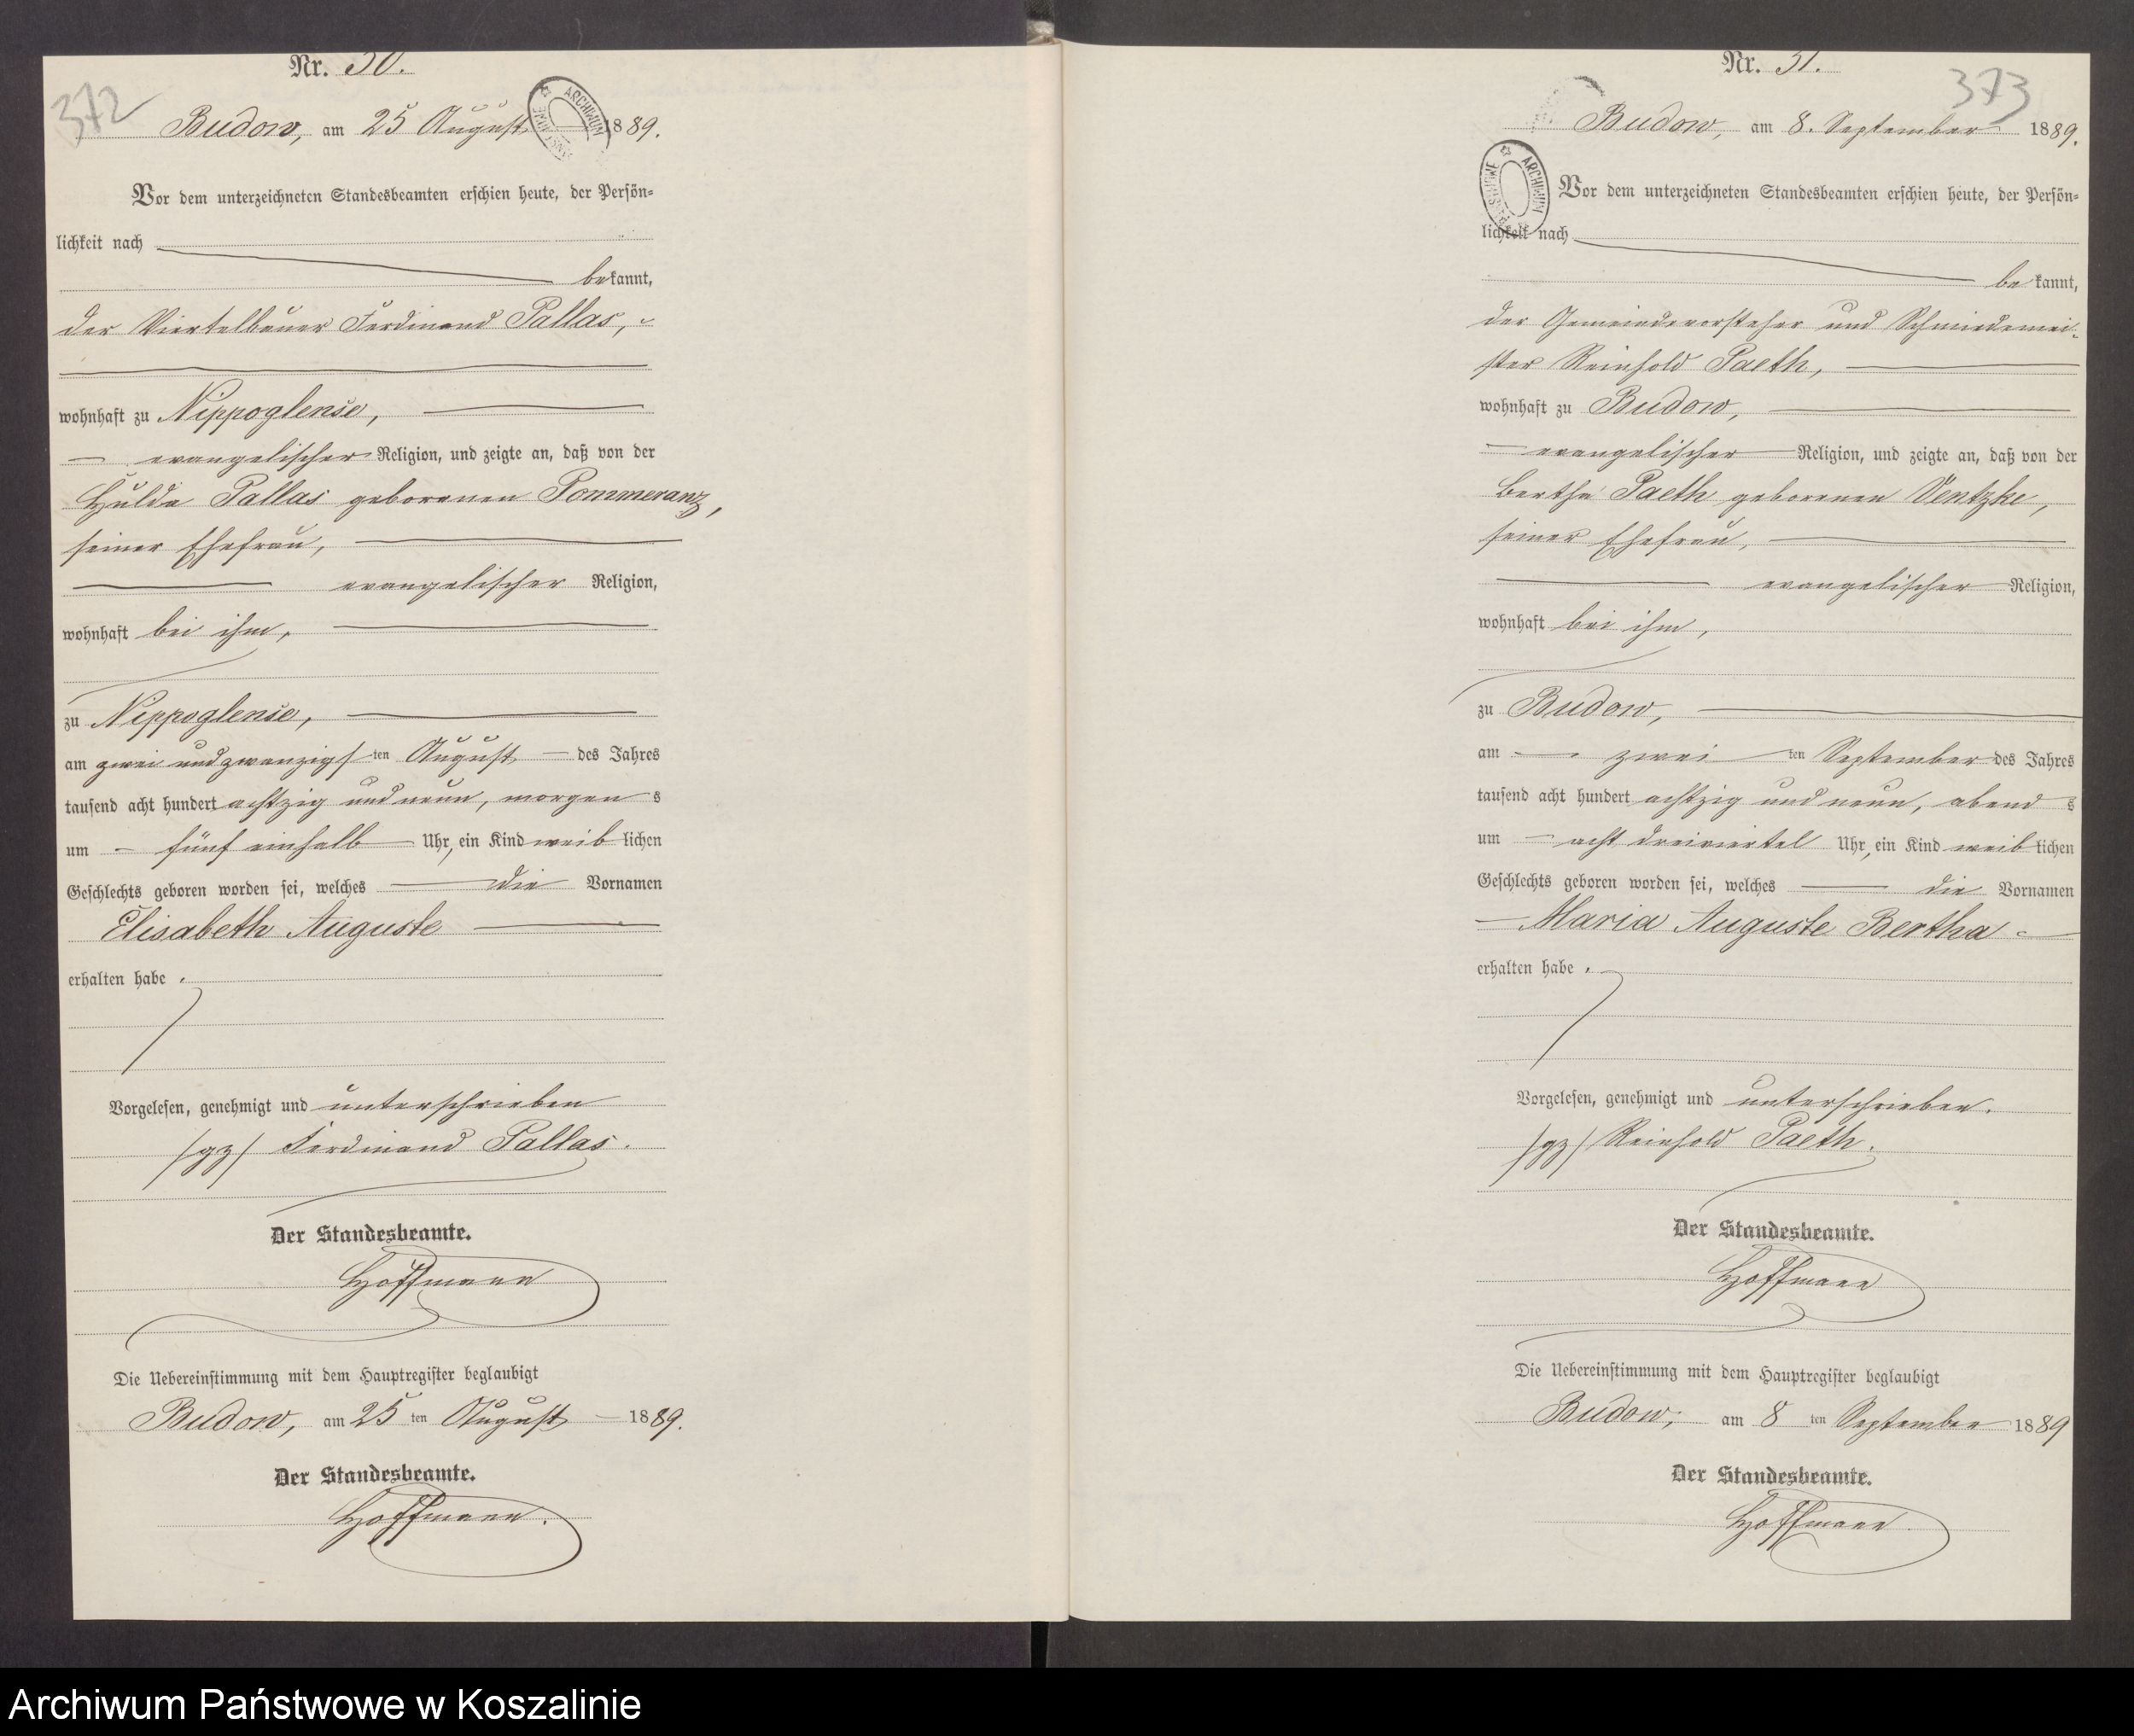 Nr. 50.
372
Budow, am 25 August 1889.
ARCHIWUM
Vor dem unterzeichneten Standesbeamten erschien heute, der Persön-
lichkeit nach
bekannt,
der Viertelbauer Ferdinand Pallas,
wohnhaft zu Nippoglense,
evangelischer Religion, und zeigte an, daß von der
Hulda Pallas geborenen Pommeranz,
seiner Ehefrau,
evangelischer Religion,
wohnhaft bei ihm,
zu Nippoglense,
am zwei und zwanzigsten August des Jahres
tausend acht hundert achtzig und neun, morgens
um fünf einhalb Uhr, ein Kind weiblichen
Geschlechts geboren worden sei, welches die Vornamen
Elisabeth Auguste
erhalten habe.
Vorgelesen, genehmigt und unterschrieben
/gz/ Ferdinand Pallas.
Der Standesbeamte.
Hoffmann
Die Uebereinstimmung mit dem Hauptregister beglaubigt
Budow, am 25 ten August 1889.
Der Standesbeamte.
Hoffmann.
Nr. 51.
373
Budow, am 8. September 1889.
ARCHIWUM
Vor dem unterzeichneten Standesbeamten erschien heute, der Persön-
lichkeit nach
bekannt,
der Gemeindevorsteher und Schmiedemei-
ster Reinhold Paeth,
wohnhaft zu Budow,
evangelischer Religion, und zeigte an, daß von der
Bertha Paeth geborenen Ventzke,
seiner Ehefrau,
evangelischer Religion,
wohnhaft bei ihm,
zu Budow,
am zwei ten September des Jahres
tausend acht hundert achtzig und neun, abends
um acht dreiviertel Uhr, ein Kind weiblichen
Geschlechts geboren worden sei, welches die Vornamen
Maria Auguste Bertha
erhalten habe.
Vorgelesen, genehmigt und unterschrieben.
/gz/ Reinhold Paeth.
Der Standesbeamte.
Hoffmann
Die Uebereinstimmung mit dem Hauptregister beglaubigt
Budow, am 8 ten September 1889
Der Standesbeamte.
Hoffmann.
Archiwum Państwowe w Koszalinie